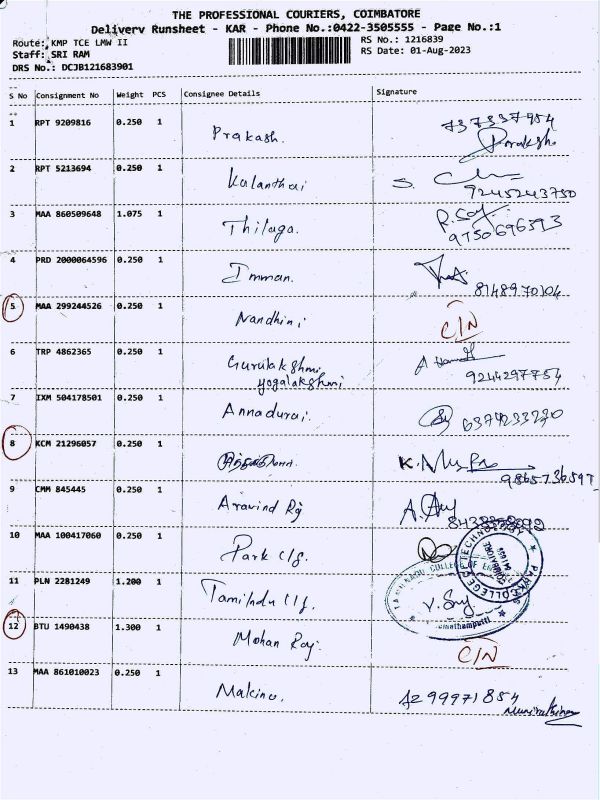 THE PROFESSIONAL COURIERS, COIMBATORE
Delivery Runsheet - KAR - Phone No.:0422-3505555 - Page No.:1
Route: KMP TCE LMW II
RS No.: 1216839
Staff: SRI RAM
RS Date: 01-Aug-2023
DRS No.: DCJB121683901
S No Consignment No Weight PCS Consignee Details Signature
1 RPT 9209816 0.250 1 Prakash.
2 RPT 5213694 0.250 1 Kalanthai 9245243750
3 MAA 860509648 1.075 1 Thilaga. 9750696393
4 PRD 2000064596 0.250 1 Imman. 8148970104
5 MAA 299244526 0.250 1 Nandhini C/N
6 TRP 4862365 0.250 1 Gurulakshmi 9244297754
yogalakshmi
7 IXM 504178501 0.250 1 Annadurai.
8 KCM 21296057 0.250 1
9 CMM 845445 0.250 1 Aravind Raj
10 MAA 100417060 0.250 1 Park Clg.
11 PLN 2281249 1.200 1 Tamilndu Clg.
12 BTU 1490438 1.300 1 Mohan Raj C/N
13 MAA 861010023 0.250 1 Makino.